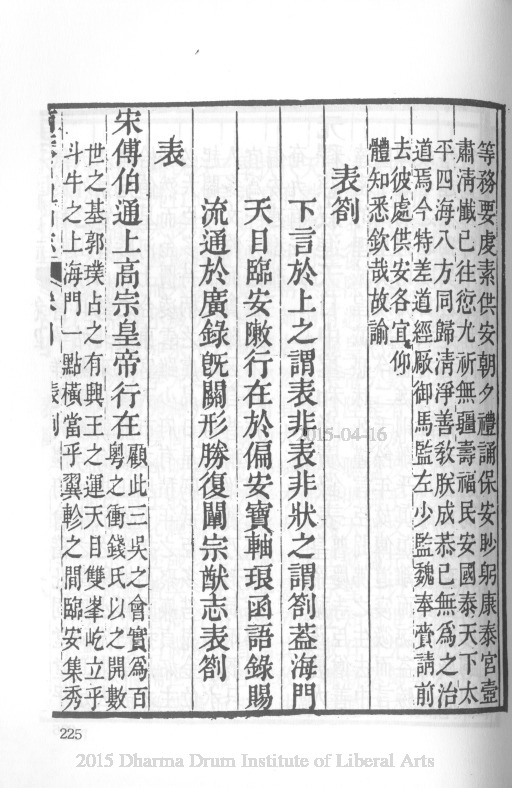 等務要虔素供安朝夕禮誦保安眇躬康泰宮壼
肅清懺已往愆尤祈無疆壽福民安國泰天下太
平四海八方同歸清淨善教朕成恭已無為之治
道焉今特差道經厰御馬監左少監魏奉賫請前
去彼處供安各宜仰
體知悉欽哉故諭
表劄
下言於上之謂表非表非狀之謂劄葢海門
天目臨安敶行在於偏安寶軸琅函語錄賜
流通於廣錄旣關形勝復闡宗猷志表劄
表
宋傅伯通上高宗皇帝行在
顧此三吳之會實為百
粤之衝錢氏以之開數
世之基郭璞占之有興王之運天目雙峯屹立乎
斗牛之上海門一點橫當乎翼軫之間臨安集秀
表劄
2015-04-16
225
2015 Dharma Drum Institute of Liberal Arts